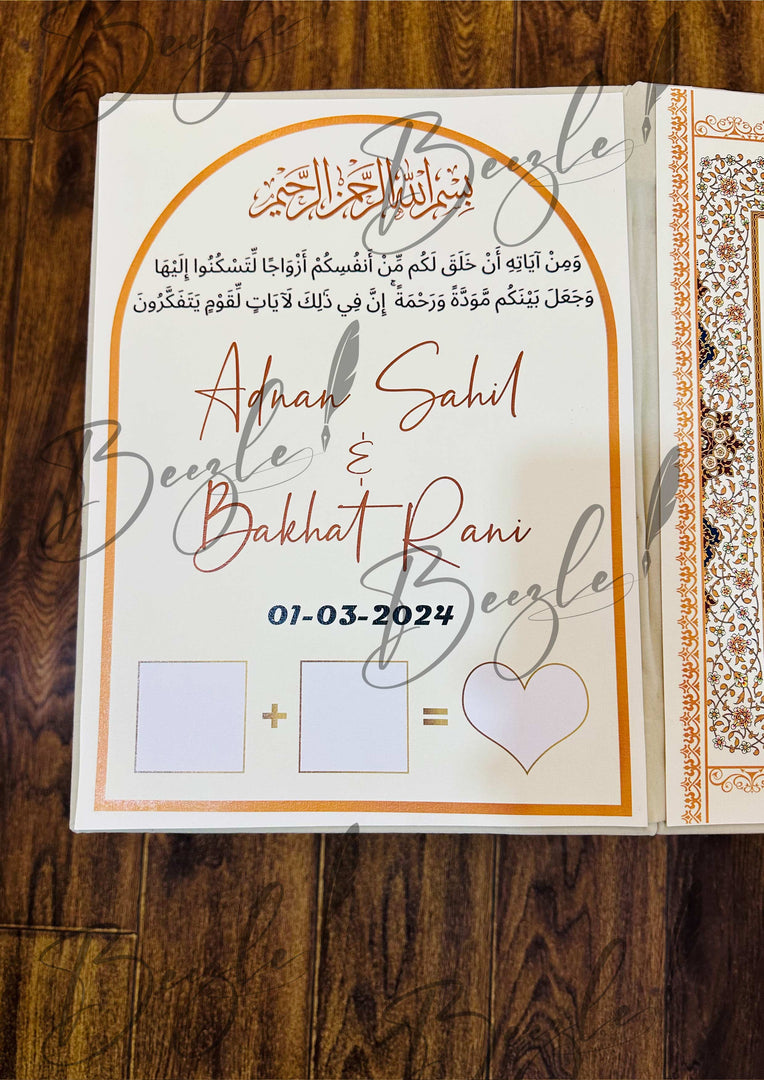 Beezle!
Beezle!
بِسْمِ اللهِ الرَّحْمٰنِ الرَّحِيْمِ
وَمِنْ آيَاتِهِ أَنْ خَلَقَ لَكُم مِّنْ أَنفُسِكُمْ أَزْوَاجًا لِّتَسْكُنُوا إِلَيْهَا
وَجَعَلَ بَيْنَكُم مَّوَدَّةً وَرَحْمَةً ۚ إِنَّ فِي ذَٰلِكَ لَآيَاتٍ لِّقَوْمٍ يَتَفَكَّرُونَ
Adnan Sahil
&
Beezle!
Bakhat Rani
Beezle!
01-03-2024
+ =
Beezle!
Beezle!